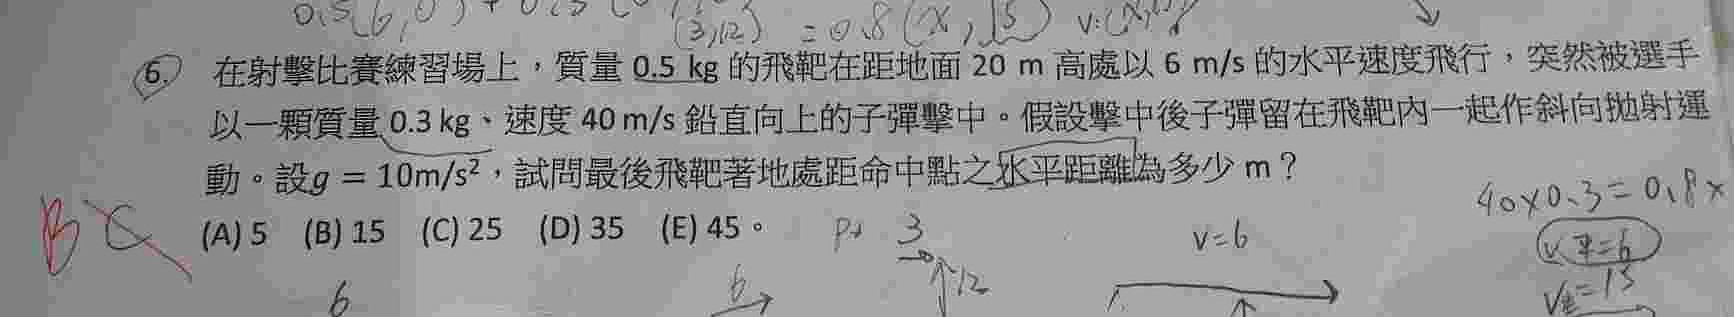 0.5(6,0) + 0.3(0,
(3,12) = 0.8(x,15) v:(x,
6. 在射擊比賽練習場上，質量 0.5 kg 的飛靶在距地面 20 m 高處以 6 m/s 的水平速度飛行，突然被選手
以一顆質量 0.3 kg、速度 40 m/s 鉛直向上的子彈擊中。假設擊中後子彈留在飛靶內一起作斜向拋射運
動。設g = 10m/s²，試問最後飛靶著地處距命中點之水平距離為多少 m？
40×0.3=0.8x
B C (A) 5 (B) 15 (C) 25 (D) 35 (E) 45。
3 v=6 v平=6
6 6 12 =15